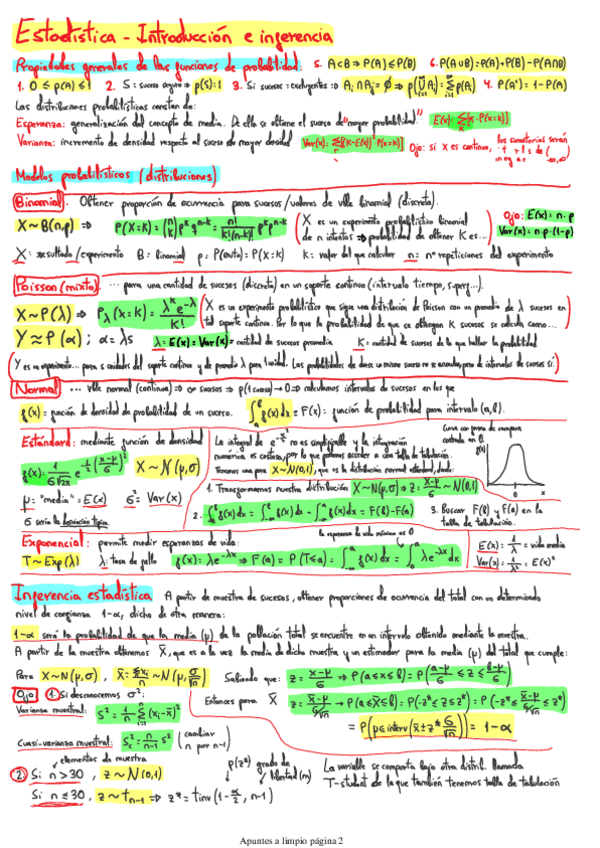 Estadística - Introducción e inferencia
Propiedades generales de las funciones de probabilidad. 5. A⊂B ⇒ P(A)≤P(B) 6. P(A∪B)=P(A)+P(B)-P(A∩B)
1. 0 ≤ p(A) ≤ 1 2. S: suceso seguro ⇒ p(S)=1 3. Si sucesos excluyentes ⇒ Ai∩Aj=∅ ⇒ p(⋃Ai)=∑p(Ai) 4. P(A')=1-P(A)
Las distribuciones probabilísticas constan de:
Esperanza: generalización del concepto de media. De ella se obtiene el suceso de "mayor probabilidad" E(x)=∑[K·P(x=k)]
Varianza: incremento de densidad respecto al suceso de mayor densidad Var(x)=∑[(K-E(x))²·P(x=k)] Ojo: si X es continuo, los sumatorios serán
Modelos probabilísticos (distribuciones)
Binomial. Obtener proporción de ocurrencia para sucesos/valores de vble binomial (discreta).
X~B(n,p) ⇒ P(X=K)=(n k) p^k q^(n-k) = n!/(k!(n-k)!) p^k p^(n-k) (X es un experimento probabilístico binomial de n intentos ⇒ probabilidad de obtener K es...) Ojo: E(x)=n·p
Var(x)=n·p·(1-p)
X: resultado/experimento B: Binomial p: P(éxito)=P(X=k) k: valor del que calcular n: nº repeticiones del experimento
Poisson (mixto). ... para una cantidad de sucesos (discreta) en un soporte continuo (intervalo tiempo, superf...).
X~P(λ) ⇒ Pλ(x=k)= λ^k e^-λ / K! (X es un experimento probabilístico que sigue una distribución de Poisson con un promedio de λ sucesos en tal soporte continuo. Por lo que la probabilidad de que se obtengan K sucesos se calcula como...
Y≈P(α); α=λs λ=E(x)=Var(x)=cantidad de sucesos promedio K=cantidad de sucesos de la que hallar la probabilidad
(Y es un experimento... para s unidades del soporte continuo y de promedio λ para 1 unidad. Las probabilidades de darse un mismo suceso no se acumulan, pero de intervalos de sucesos sí)
Normal ... vble normal (continua) ⇒ ∞ sucesos ⇒ p(1 suceso)→0 ⇒ calculamos intervalos de sucesos en los que
f(x)= función de densidad de probabilidad de un suceso. ∫ₐᵇ f(x)dx = F(x): función de probabilidad para intervalo (a,b).
Estándard: mediante función de densidad
f(x)= 1/(σ√2π) e^(-½((x-μ)/σ)²) X~N(μ,σ)
μ= "media"=E(x) σ²=Var(x)
σ sería la desviación típica.
La integral de e^(-x²/2) no es simplificable y la integración
numérica es costosa, por lo que podemos acceder a una tabla de tabulación.
Tenemos una para X~N(0,1), que es la distribución normal estándard, donde:
1. Transformamos nuestra distribución X~N(μ,σ) ⇒ z= (x-μ)/σ ~ N(0,1)
2. ∫ₐᵇ f(x)dx = ∫f(x)dx - ∫f(x)dx = F(b)-F(a) 3. Buscar F(b) y F(a) en la
tabla de tabulación.
Curva con forma de campana
centrada en 0.
f(x)
0 x
Exponencial: permite medir esperanzas de vida:
la esperanza de vida mínima es 0
T~Exp(λ) λ: tasa de fallo f(x)=λe^-λx ⇒ F(a)=P(T≤a)=∫f(x)dx=∫₀ᵃ λe^-λx dx
E(x)=1/λ=vida media
Var(x)=1/λ²=E(x)²
Inferencia estadística A partir de muestra de sucesos, obtener proporciones de ocurrencia del total con un determinado
nivel de confianza 1-α, dicho de otra manera:
1-α será la probabilidad de que la media (μ) de la población total se encuentre en un intervalo obtenido mediante la muestra.
A partir de la muestra obtenemos X̄, que es a la vez la media de dicha muestra y un estimador para la media (μ) del total que cumple:
Para X~N(μ,σ), X̄=∑xi/n ~N(μ, σ/√n) Sabiendo que: z=(x-μ)/σ ⇒ P(a≤x≤b)=P((a-μ)/σ ≤ z ≤ (b-μ)/σ)
Ojo 1. Si desconocemos σ²:
Varianza muestral: S²=1/n ∑(xi-x̄)²
Entonces para X̄ z=(x̄-μ)/(σ/√n) → P(a≤X̄≤b)=P(-z*≤z≤z*)=P(-z*≤(x̄-μ)/(σ/√n)≤z*)
= P(μ∈interv(x̄±z* σ/√n)) = 1-α
Cuasi-varianza muestral: Sc²= n/(n-1) S² (cambiar n por n-1)
elementos de muestra
2. Si n>30, z~N(0,1)
p(z*) grado de libertad (m)
Si n≤30, z~t n-1 ⇒ z*=tinv(1-α/2, n-1)
La variable se comporta bajo otra distrib. llamada
T-student de la que también tenemos tabla de tabulación
Apuntes a limpio página 2